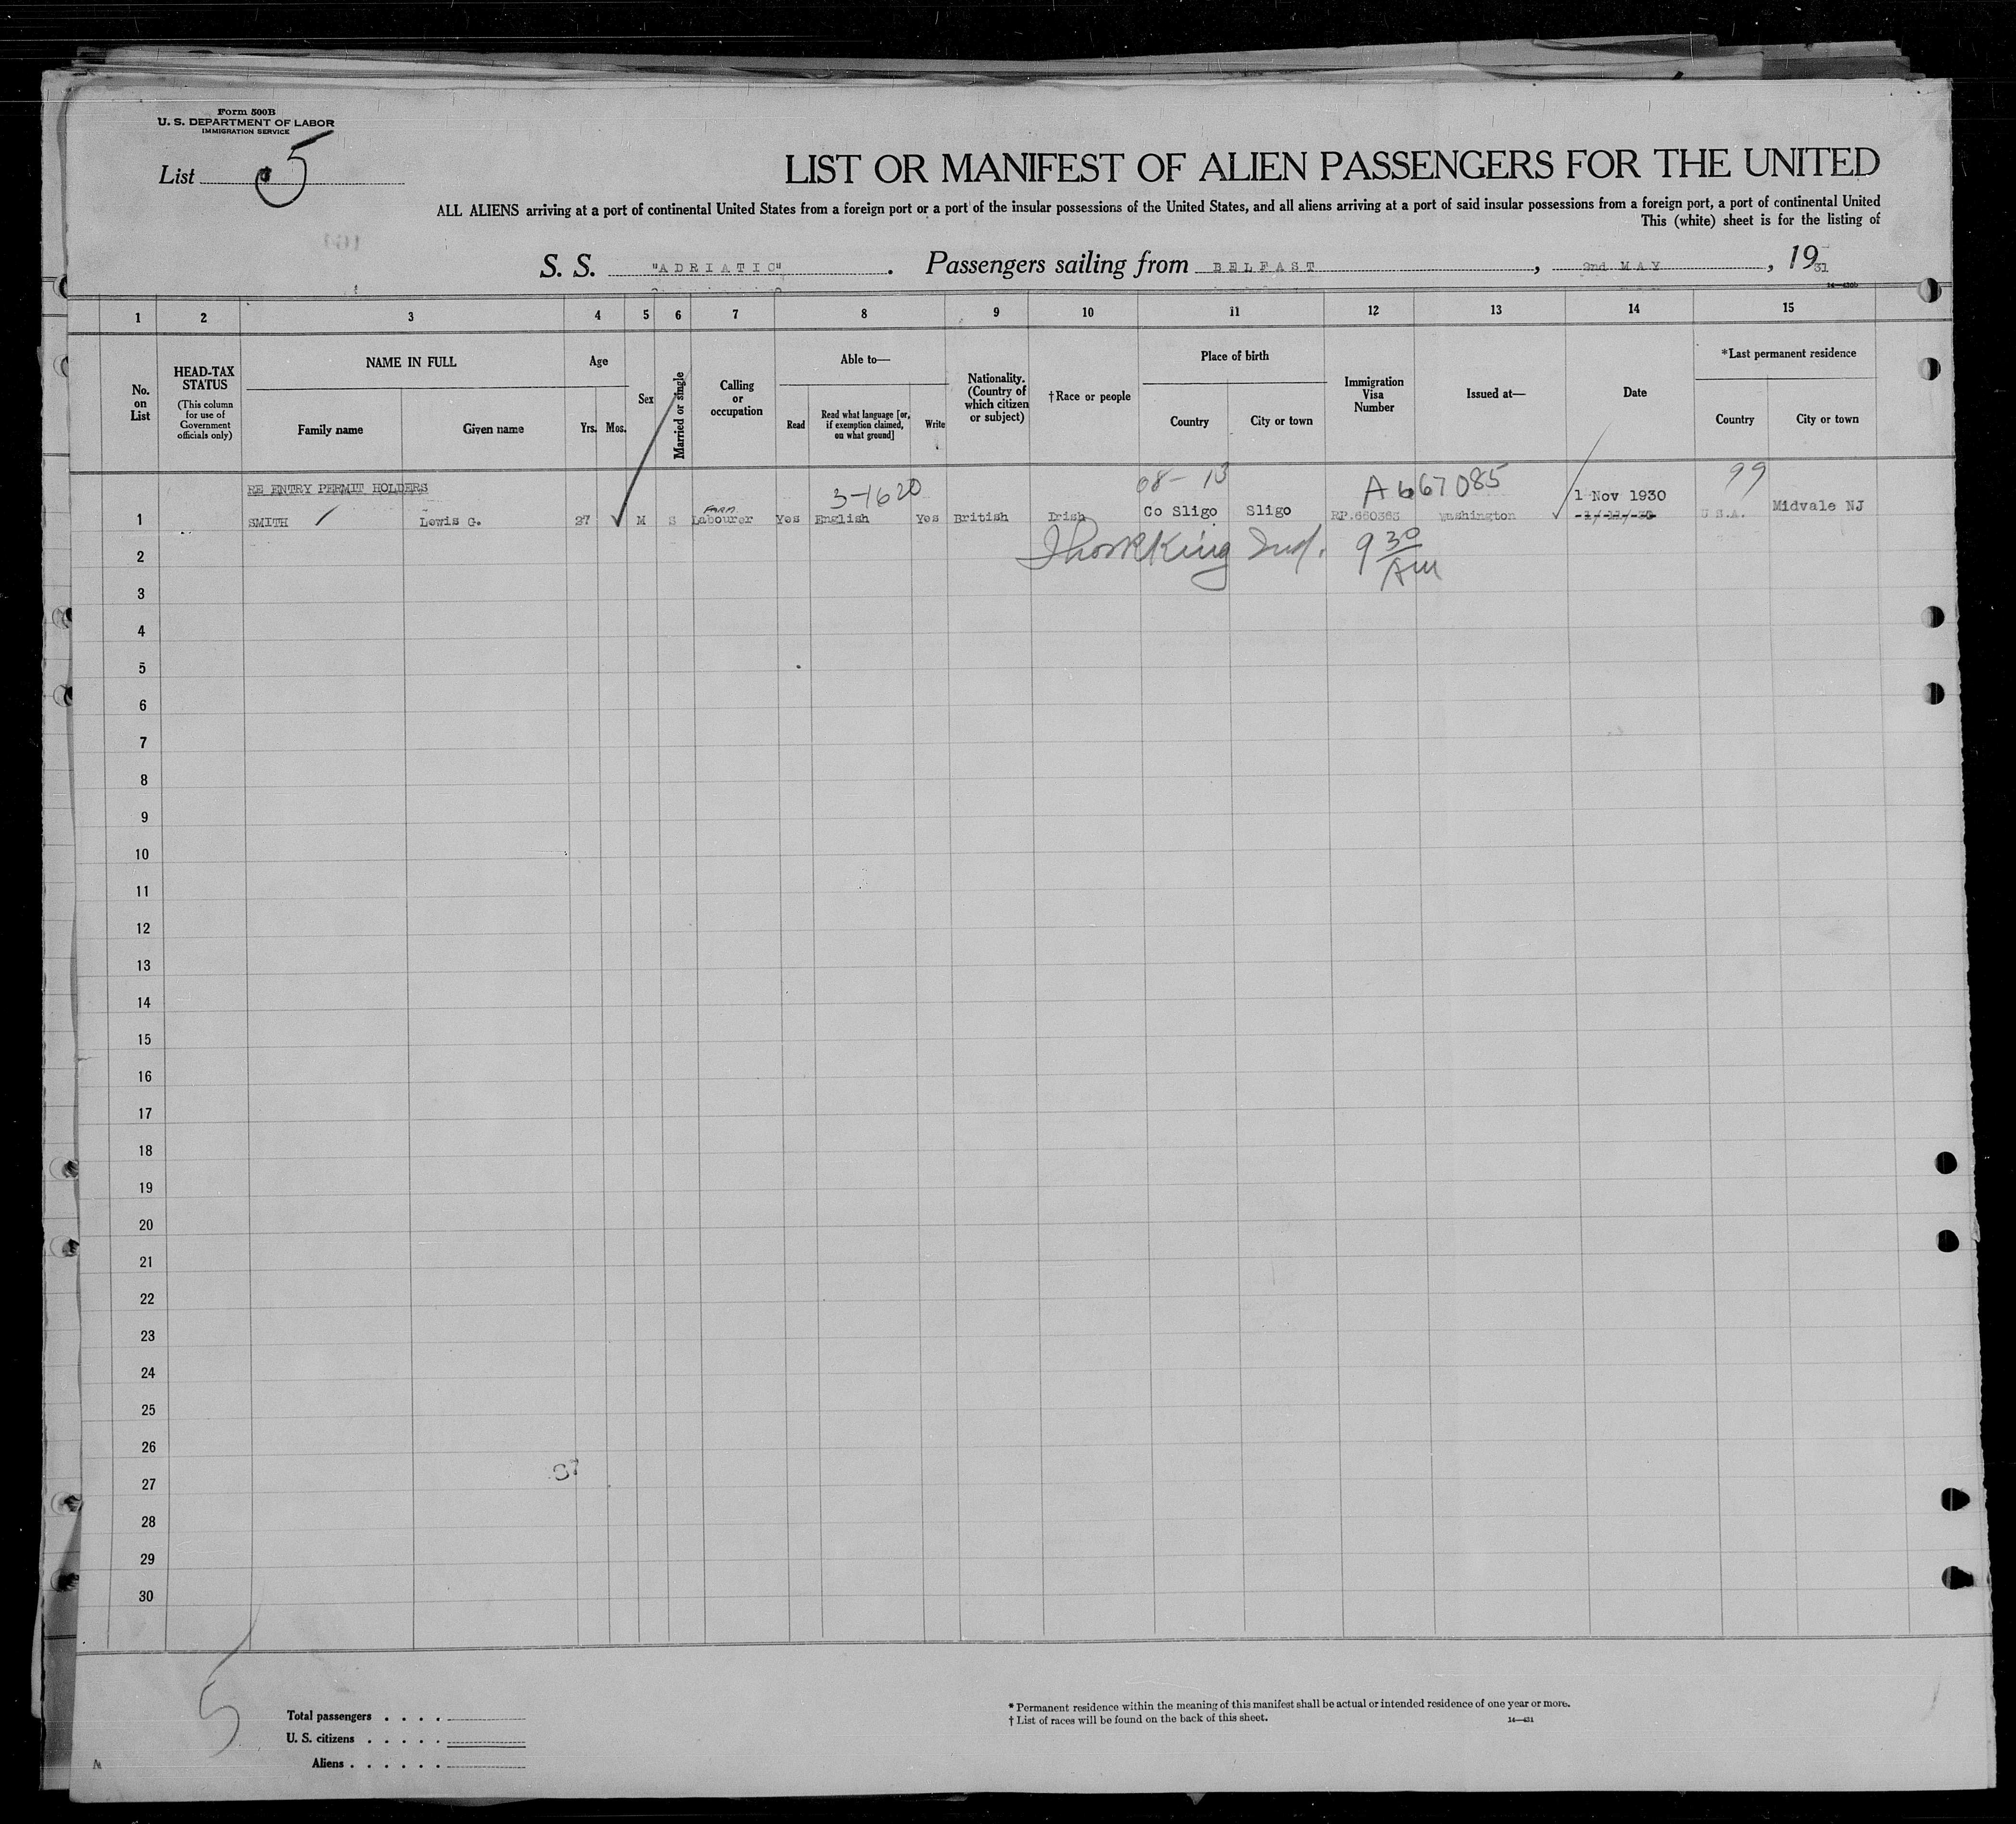 Form 500B
U. S. DEPARTMENT OF LABOR
IMMIGRATION SERVICE
List 5
LIST OR MANIFEST OF ALIEN PASSENGERS FOR THE UNITED
ALL ALIENS arriving at a port of continental United States from a foreign port or a port of the insular possessions of the United States, and all aliens arriving at a port of said insular possessions from a foreign port, a port of continental United
This (white) sheet is for the listing of
S. S. "ADRIATIC". Passengers sailing from BELFAST, 2nd MAY, 1931
1 2 3 4 5 6 7 8 9 10 11 12 13 14 15
No. on List
HEAD-TAX STATUS
(This column for use of Government officials only)
NAME IN FULL
Family name
Given name
Age
Yrs.
Mos.
Sex
Married or single
Calling or occupation
Able to—
Read
Read what language [or, if exemption claimed, on what ground]
Write
Nationality. (Country of which citizen or subject)
†Race or people
Place of birth
Country
City or town
Immigration Visa Number
Issued at—
Date
*Last permanent residence
Country
City or town
RE ENTRY PERMIT HOLDERS
3-1620 08-13 A667085 1 Nov 1930 99
1 SMITH Lewis G. 27 M S Farm Labourer Yes English Yes British Irish Co Sligo Sligo RP.660383 Washington 1/11/30 U S.A. Midvale NJ
2 King 9 30 AM
3
4
5
6
7
8
9
10
11
12
13
14
15
16
17
18
19
20
21
22
23
24
25
26
27
28
29
30
5
Total passengers . . . .
U. S. citizens . . . . .
Aliens . . . . . .
* Permanent residence within the meaning of this manifest shall be actual or intended residence of one year or more.
† List of races will be found on the back of this sheet.
14—431